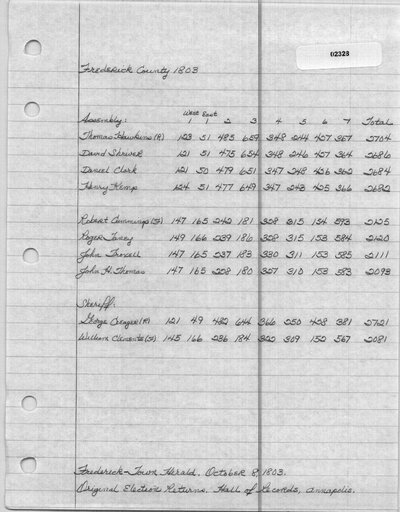 02328
Frederick County 1803
West East
Assembly: 1 1 2 3 4 5 6 7 Total
Thomas Hawkins (R) 123 51 485 659 348 244 427 367 2704
David Shriver 121 51 475 654 348 246 427 364 2686
Daniel Clark 121 50 479 651 347 248 426 362 2684
Henry Kemp 124 51 477 649 347 243 425 366 2682
Robert Cummings (F) 147 165 242 181 328 315 154 593 2125
Roger Taney 149 166 239 186 328 315 153 584 2120
John Troxell 147 165 237 183 330 311 153 585 2111
John H. Thomas 147 165 228 180 327 310 153 583 2093
Sheriff:
George Creager (R) 121 49 482 644 366 250 428 381 2721
William Clements (F) 145 166 236 184 322 309 152 567 2081
Frederick-Town Herald. October 8, 1803.
Original Election Returns. Hall of Records, Annapolis.